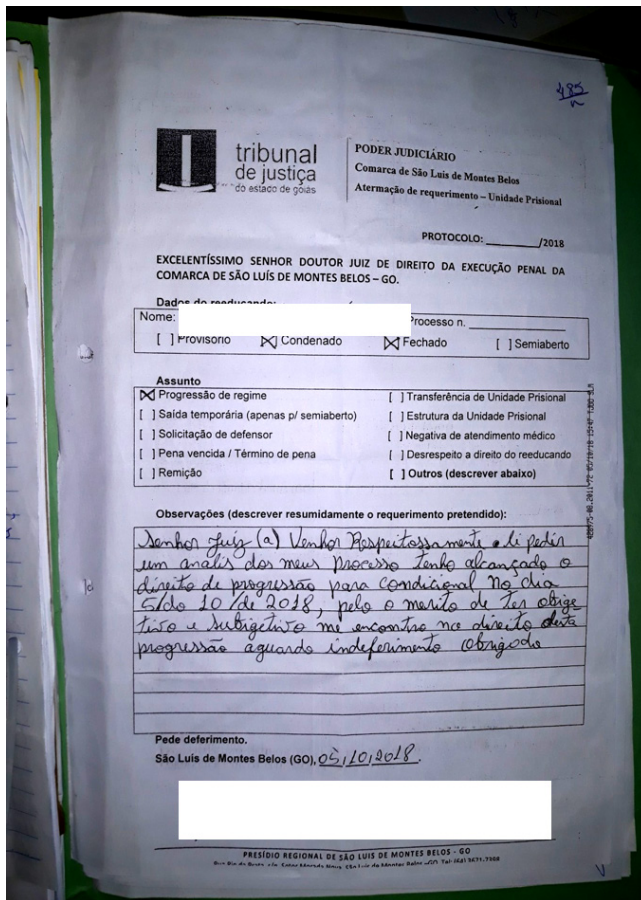 485
tribunal
de justiça
do estado de goiás
PODER JUDICIÁRIO
Comarca de São Luis de Montes Belos
Atermação de requerimento – Unidade Prisional
PROTOCOLO: ________/2018
EXCELENTÍSSIMO SENHOR DOUTOR JUIZ DE DIREITO DA EXECUÇÃO PENAL DA
COMARCA DE SÃO LUÍS DE MONTES BELOS – GO.
Dados do reeducando:
Nome: Processo n. ________
[ ] Provisório [X] Condenado [X] Fechado [ ] Semiaberto
Assunto
[X] Progressão de regime
[ ] Saída temporária (apenas p/ semiaberto)
[ ] Solicitação de defensor
[ ] Pena vencida / Término de pena
[ ] Remição
[ ] Transferência de Unidade Prisional
[ ] Estrutura da Unidade Prisional
[ ] Negativa de atendimento médico
[ ] Desrespeito a direito do reeducando
[ ] Outros (descrever abaixo)
Observações (descrever resumidamente o requerimento pretendido):
Senhor Juiz (a) Venhor Respeitossamente li pedir
um analis dos meus processo tenho alcançado o
direito de progressão para condicional no dia
5/do 10/de 2018, pelo o merito de ter obige
tivo e subigetivo me encontro no direito desta
progressão aguardo indeferimento obrigodo
Pede deferimento.
São Luis de Montes Belos (GO), 05/10/2018.
PRESÍDIO REGIONAL DE SÃO LUIS DE MONTES BELOS - GO